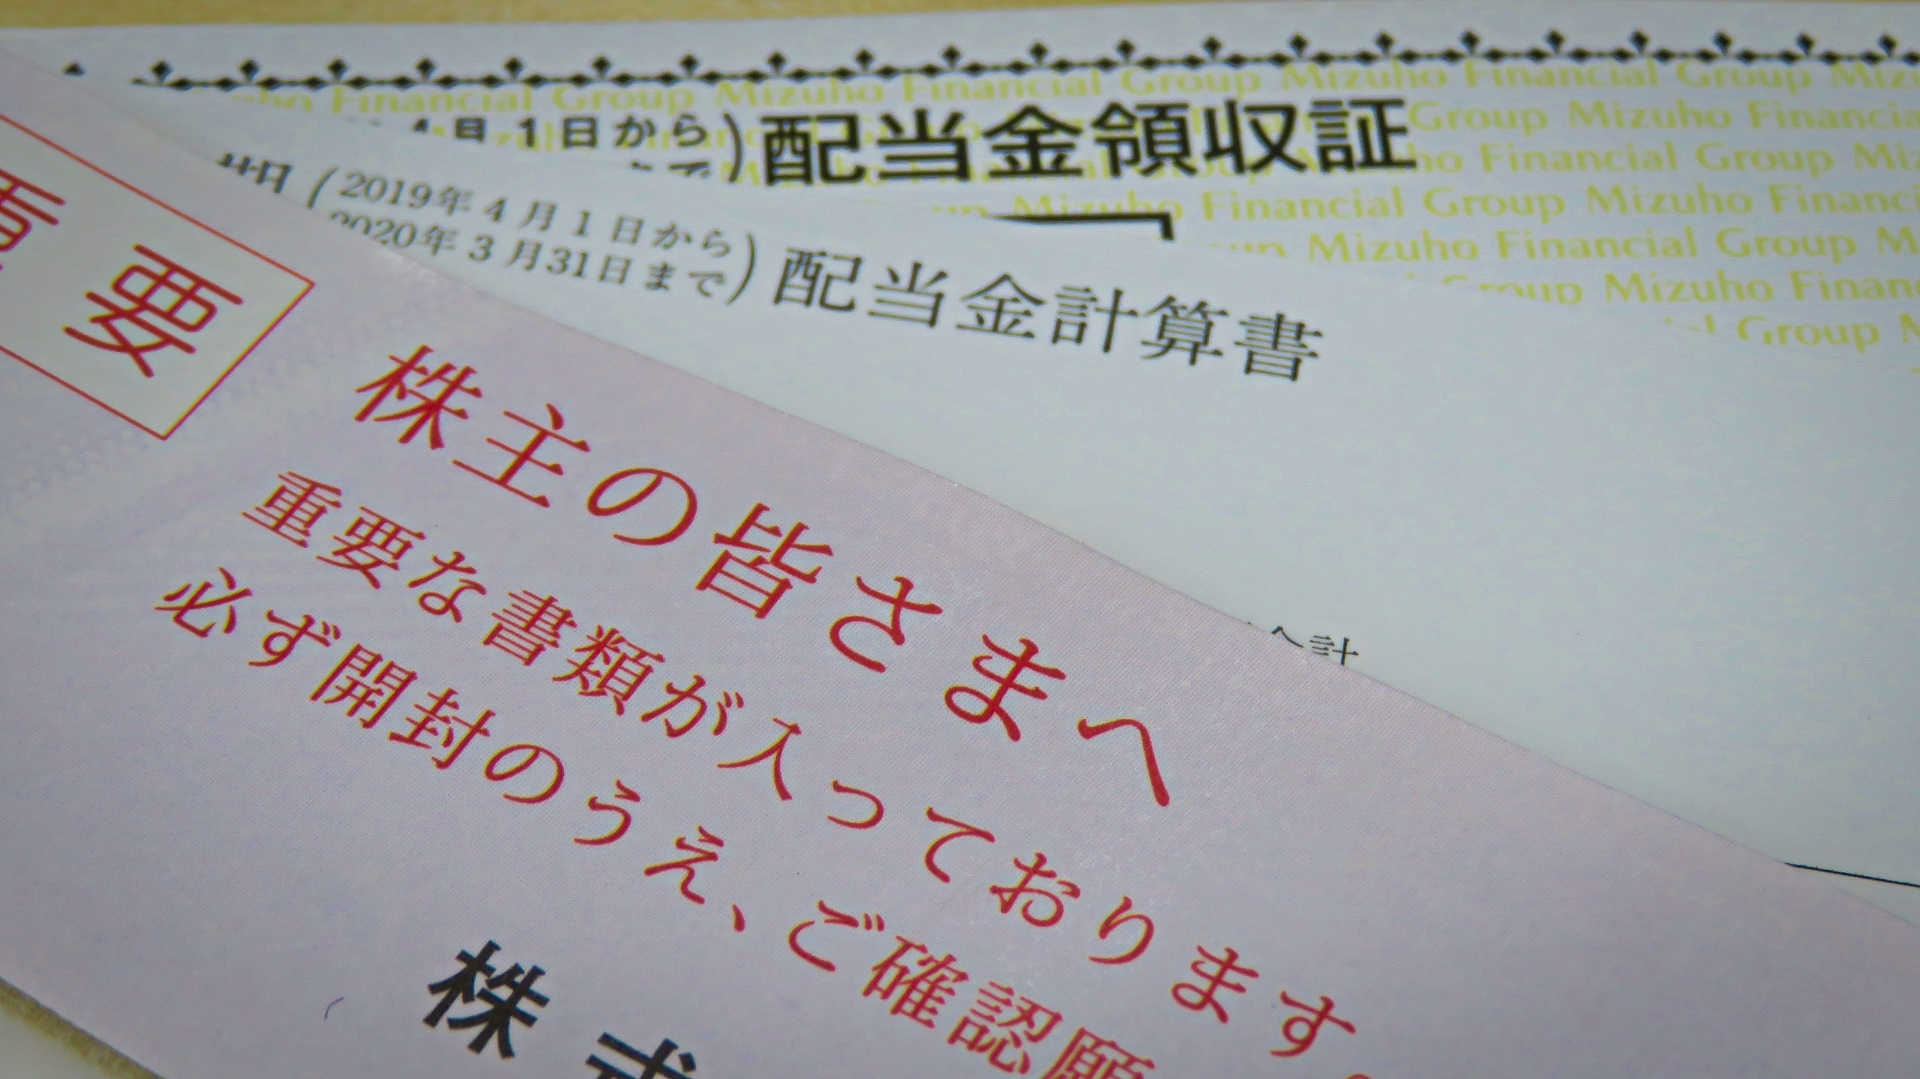 Financial Group Mizuho Financial Group Mizuho Financial Group
4月1日から
配当金領収証
Group Mizuho Financial
Financial Group
Mizuho Financial Group Mizuho Financial
Mizuho Financial Group
Mizuho
Group
(2019年4月1日から
2020年3月31日まで)
配当金計算書
合計
重要
株主の皆さまへ
重要な書類が入っております。
必ず開封のうえ、ご確認願
株式